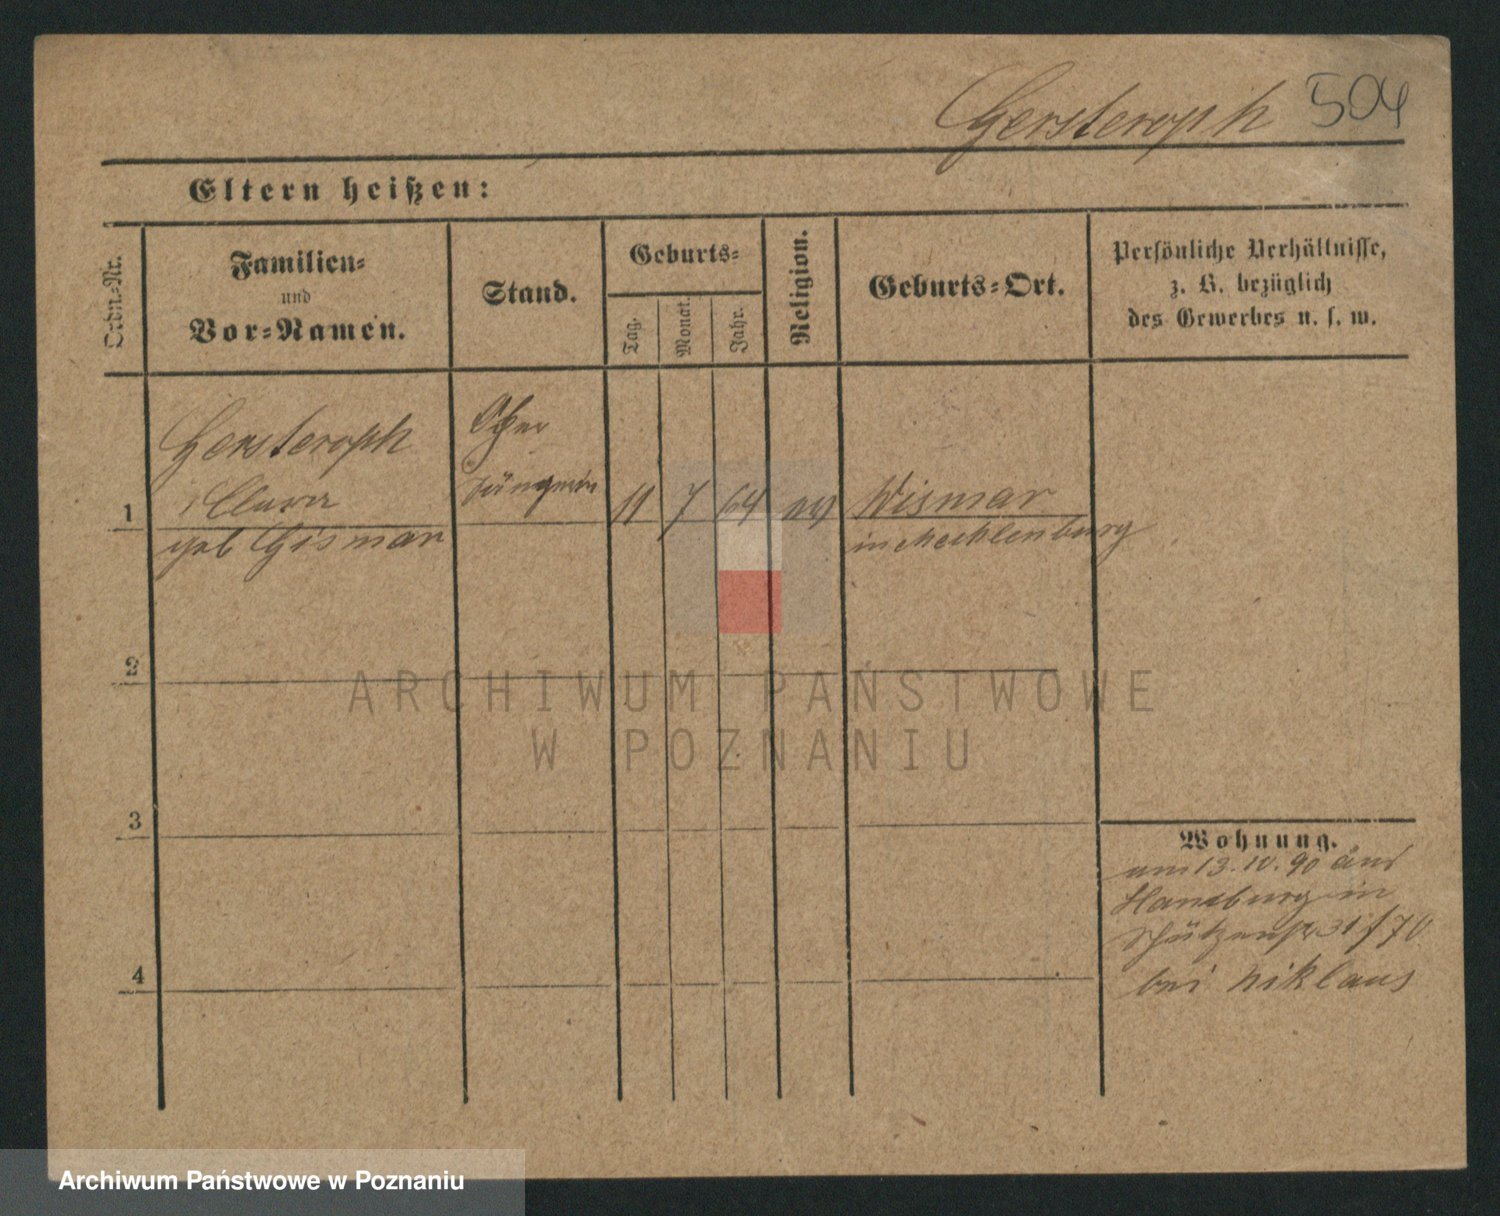 Gersteroph 504
Eltern heißen:
Ordn.-Nr.
Familien-
und
Vor-Namen.
Stand.
Geburts-
Tag.
Monat.
Jahr.
Religion.
Geburts-Ort.
Persönliche Verhältnisse,
z. B. bezüglich
des Gewerbes u. s. w.
Gersteroph
Clara
geb Gismar
1
11 7 64 ev
Wismar
in Mecklenburg
2
3
4
Wohnung.
am 13. 10. 90 aus
Hamburg in
Schützenstr 31 / 70
bei Niklaus
ARCHIWUM PAŃSTWOWE
W POZNANIU
Archiwum Państwowe w Poznaniu